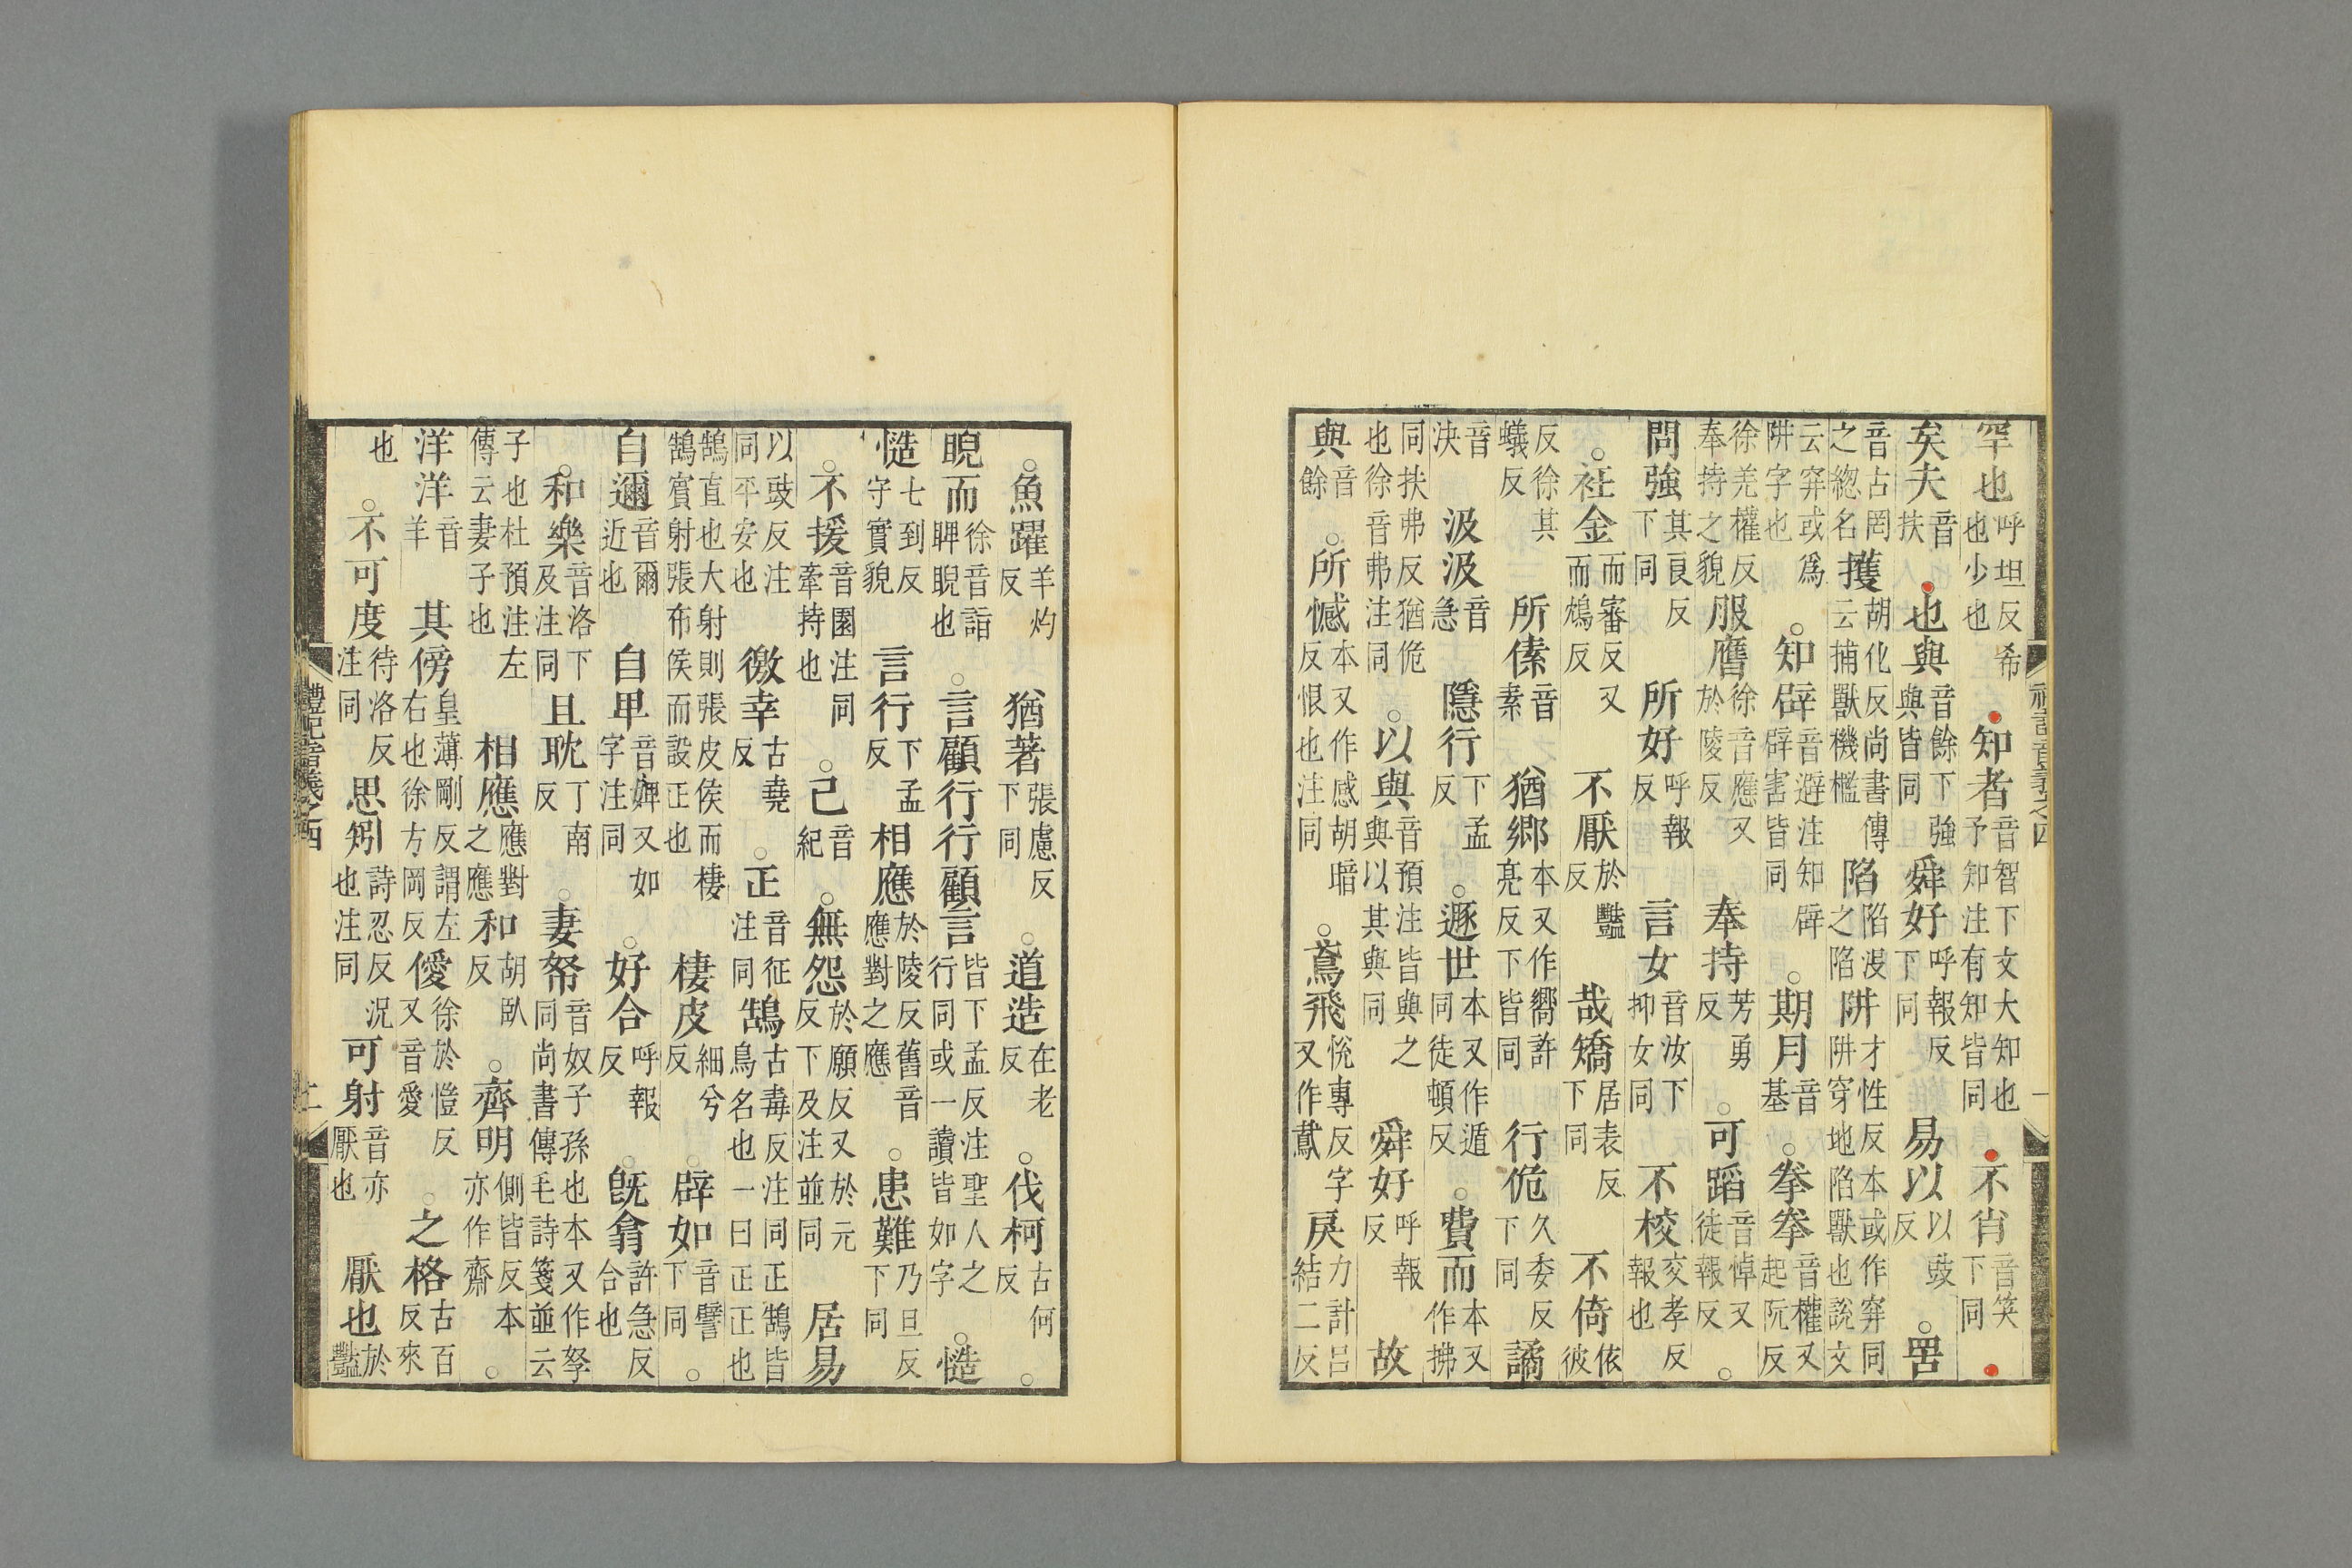 罕也呼坦反希也少也知者音智下文大知也予知注有知皆同不肖音笑下同
矣夫音扶也與音餘下強與皆同舜好呼報反下同易以以豉反○罟
音古罔之總名擭胡化反尚書傳云捕獸機檻陷陷沒之陷阱才性反本或作穽同阱穿地陷獸也說文
云穽或爲阱字也○知辟音避注知辟辟害皆同○期月音基○拳拳音權又起阮反
徐羌權反奉持之貌服膺徐音應又於陵反奉持芳勇反○可蹈音悼又徒報反○
問強其良反下同所好呼報反言女音汝下抑女同不校交孝反報也
○衽金而審反又而鴆反不厭於豔反哉矯居表反下同不倚依彼
反徐其蟻反所傃音素猶鄉本又作嚮許亮反下皆同行佹久委反下同譎
音決汲汲音急隱行下孟反○遯世本又作遁同徒頓反○費而本又作拂
同扶弗反猶佹也徐音弗注同○以與音預注皆與之與以其與同舜好呼報反故
與音餘○所憾本又作感胡暗反恨也注同○鳶飛悅專反字又作䳒戾力計呂結二反
禮記音義之四
○魚躍羊灼反猶著張慮反下同○道造在老反○伐柯古何反○
睨而徐音詣睥睨也○言顧行行顧言皆下孟反注聖人之行同或一讀皆如字○慥
慥七到反守實貌言行下孟反相應於陵反舊音應對之應○患難乃旦反下同
○不援音園注同牽持也○己音紀○無怨於願反又於元反下及注並同居易
以豉反注同平安也徼幸古堯反○正音征注同鵠古毒反注同正鵠皆鳥名也一曰正正也
鵠直也大射則張皮侯而棲鵠賓射張布侯而設正也棲皮細兮反○辟如音譬下同○
自邇音爾近也自卑音婢又如字注同○好合呼報反○旣翕許急反合也
○和樂音洛下及注同且耽丁南反○妻帑音奴子孫也本又作孥同尚書傳毛詩箋並云
子也杜預注左傳云妻子也相應應對之應和胡臥反○齊明側皆反本亦作齋○
洋洋音羊其傍皇薄剛反謂左右也徐方岡反僾徐於愷反又音愛○之格古百反來
也○不可度待洛反注同思矧詩忍反況也注同可射音亦厭也厭也於豔
禮記音義之四
二